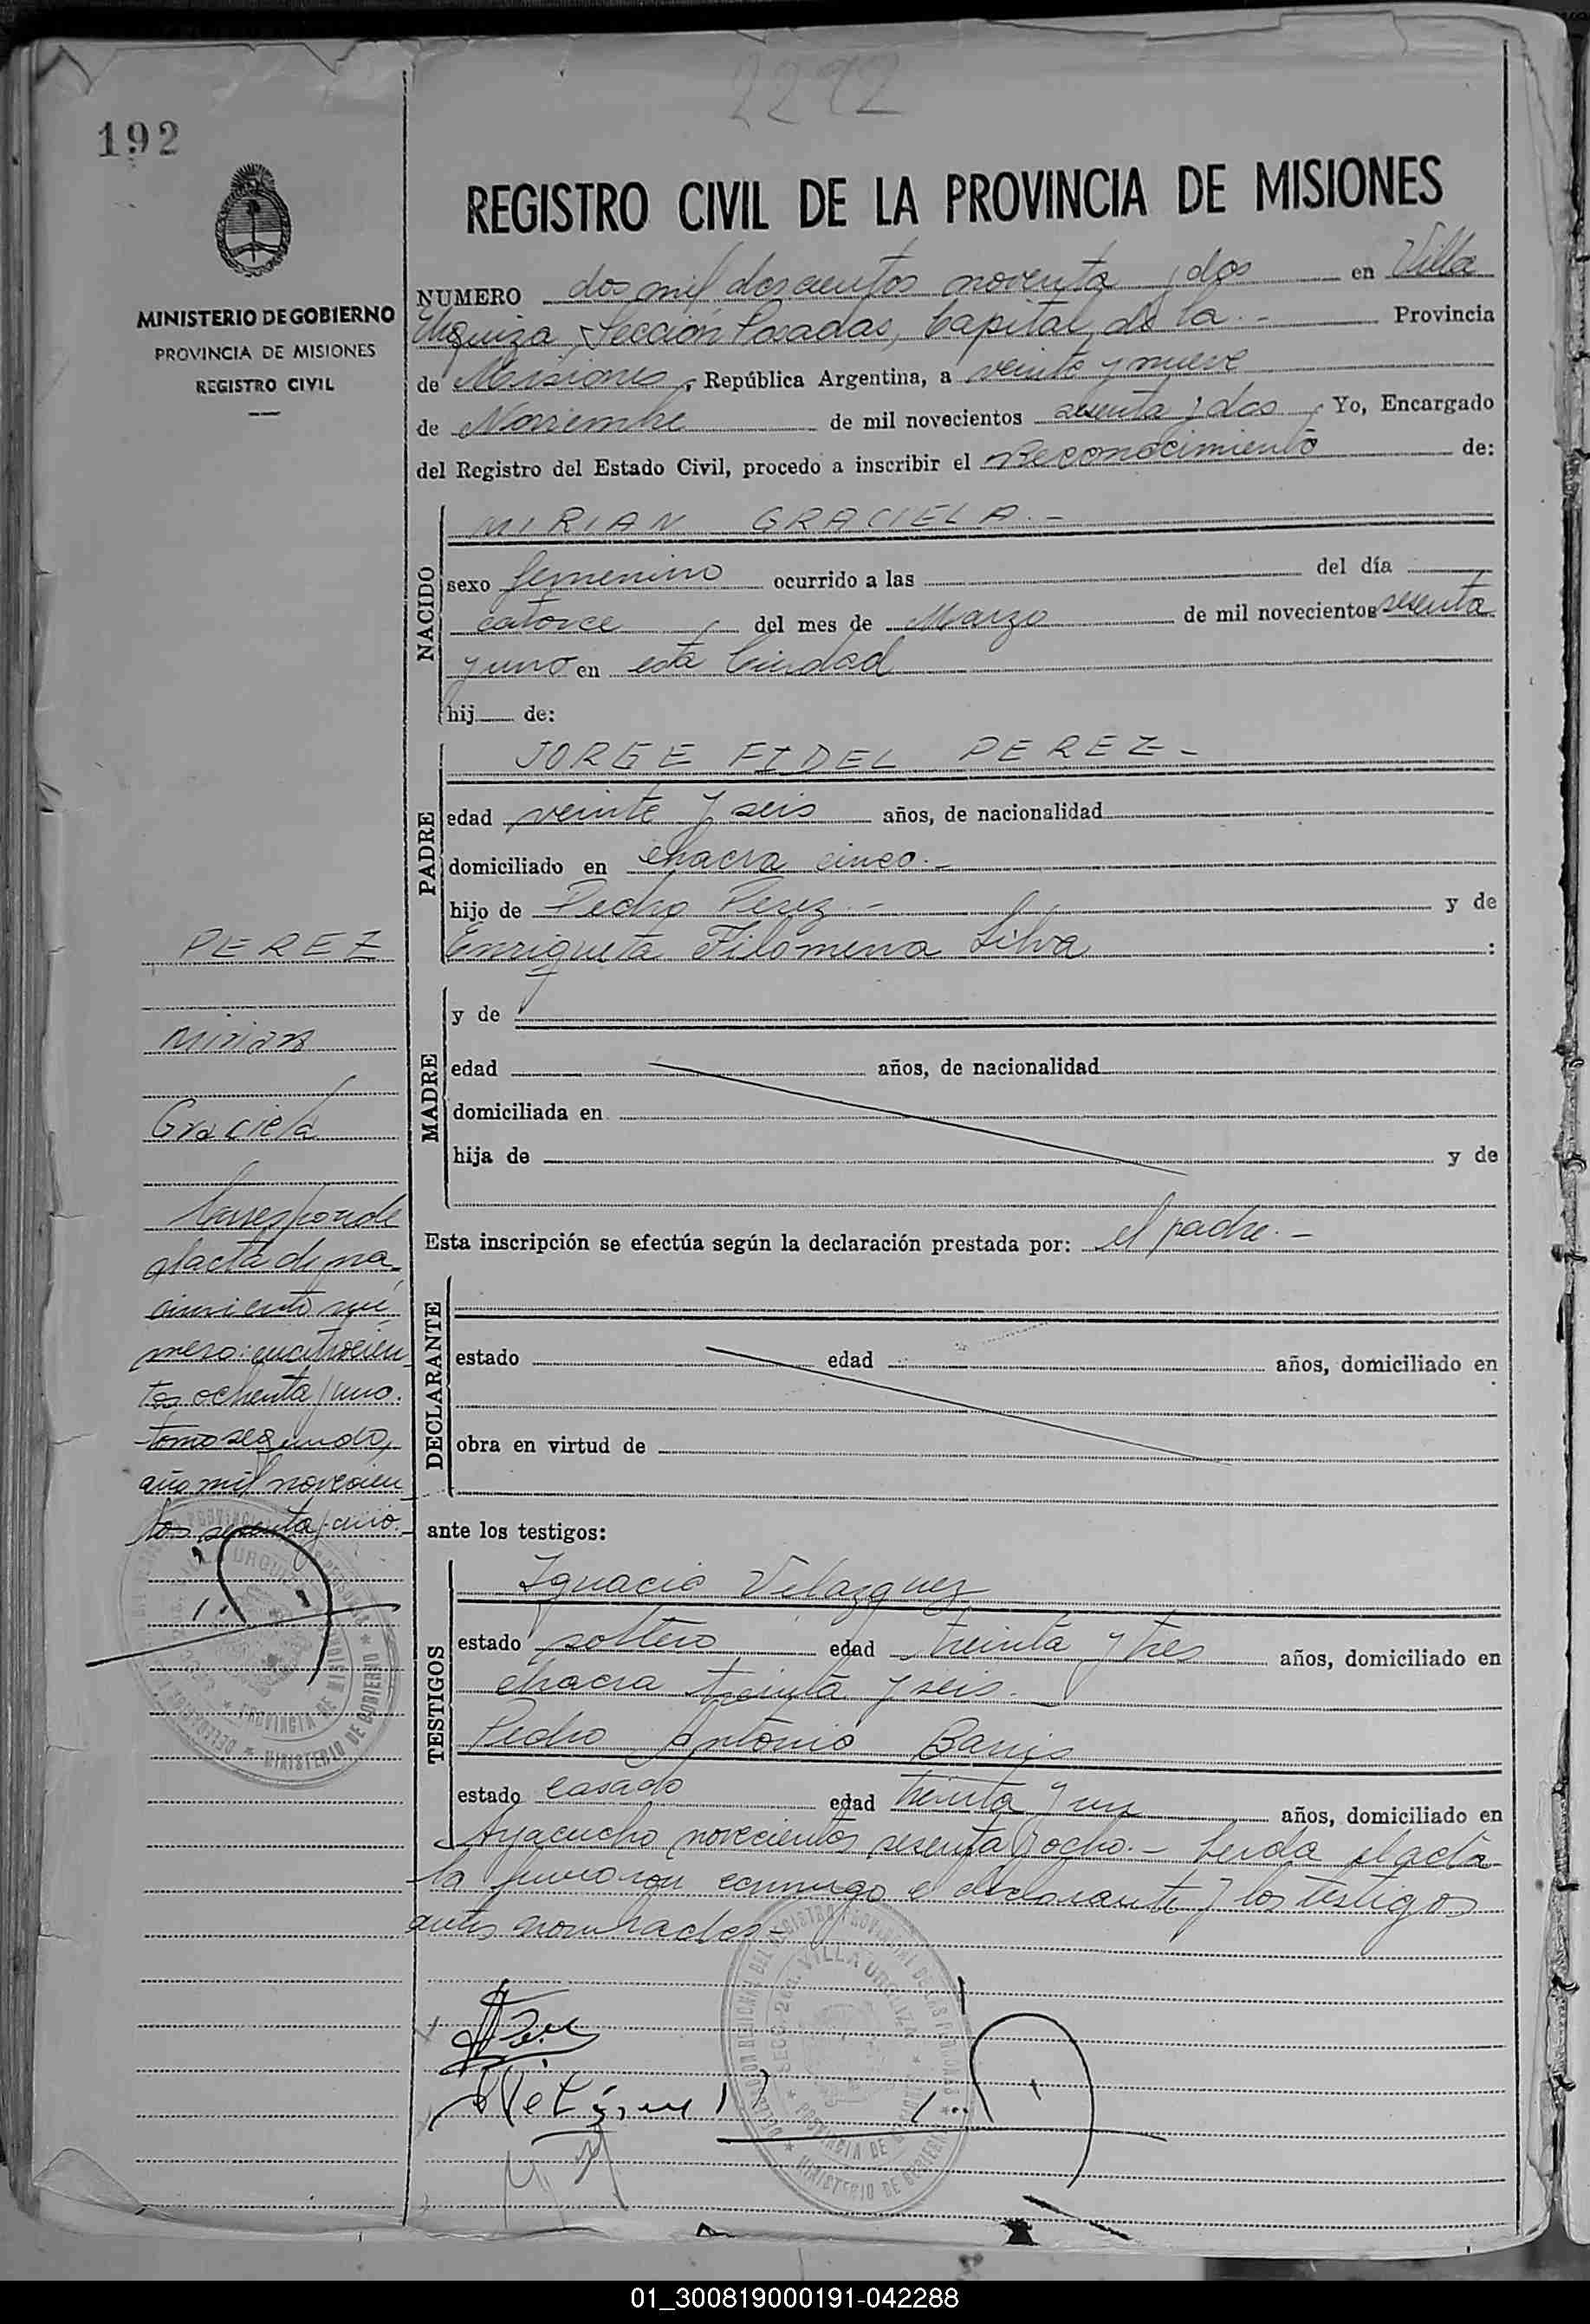 2292
192
REGISTRO CIVIL DE LA PROVINCIA DE MISIONES
MINISTERIO DE GOBIERNO
PROVINCIA DE MISIONES
REGISTRO CIVIL
NUMERO dos mil doscientos noventa y dos en Villa
Urquiza, Sección Posadas, Capital de la.- Provincia
de Misiones, República Argentina, a veinte y nueve
de Noviembre de mil novecientos sesenta y dos, Yo, Encargado
del Registro del Estado Civil, procedo a inscribir el Reconocimiento de:
NACIDO
MIRIAN GRACIELA.-
sexo femenino ocurrido a las del día
catorce del mes de Marzo de mil novecientos sesenta
y uno en esta Ciudad
hij de:
PADRE
JORGE FIDEL PEREZ-
edad veinte y seis años, de nacionalidad
domiciliado en chacra cinco.-
hijo de Pedro Perez.- y de
Enriqueta Filomena Silva :
MADRE
y de
edad años, de nacionalidad
domiciliada en
hija de y de
Esta inscripción se efectúa según la declaración prestada por: el padre.-
DECLARANTE
estado edad años, domiciliado en
obra en virtud de
ante los testigos:
TESTIGOS
Ignacio Velazquez
estado soltero edad treinta y tres años, domiciliado en
chacra treinta y seis.-
Pedro Antonio
estado casado edad treinta y un años, domiciliado en
Ayacucho novecientos sesenta y ocho.- Leida el acta
la firmaron conmigo el declarante y los testigos
antes nombrados-
PEREZ
Mirian
Graciela
Corresponde
al acta de na
cimiento nú
mero: cuatrocien
tos ochenta y uno.
tomo segundo,
año mil novecien
tos sesenta y uno.-
VILLA URQUIZA
PROVINCIA DE MISIONES
MINISTERIO DE GOBIERNO
SECC. 2da. VILLA URQUIZA
PROVINCIA DE MISIONES
MINISTERIO DE GOBIERNO
01_300819000191-042288